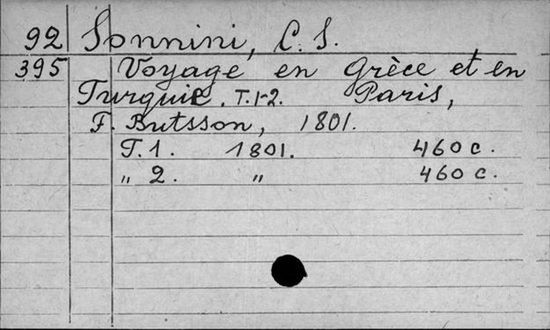 92 Sonnini, C. S.
395 Voyage en Grèce et en
Turquie, T. 1-2. Paris,
F. Butsson, 1801.
T. 1. 1801. 460 c.
" 2. " 460 c.